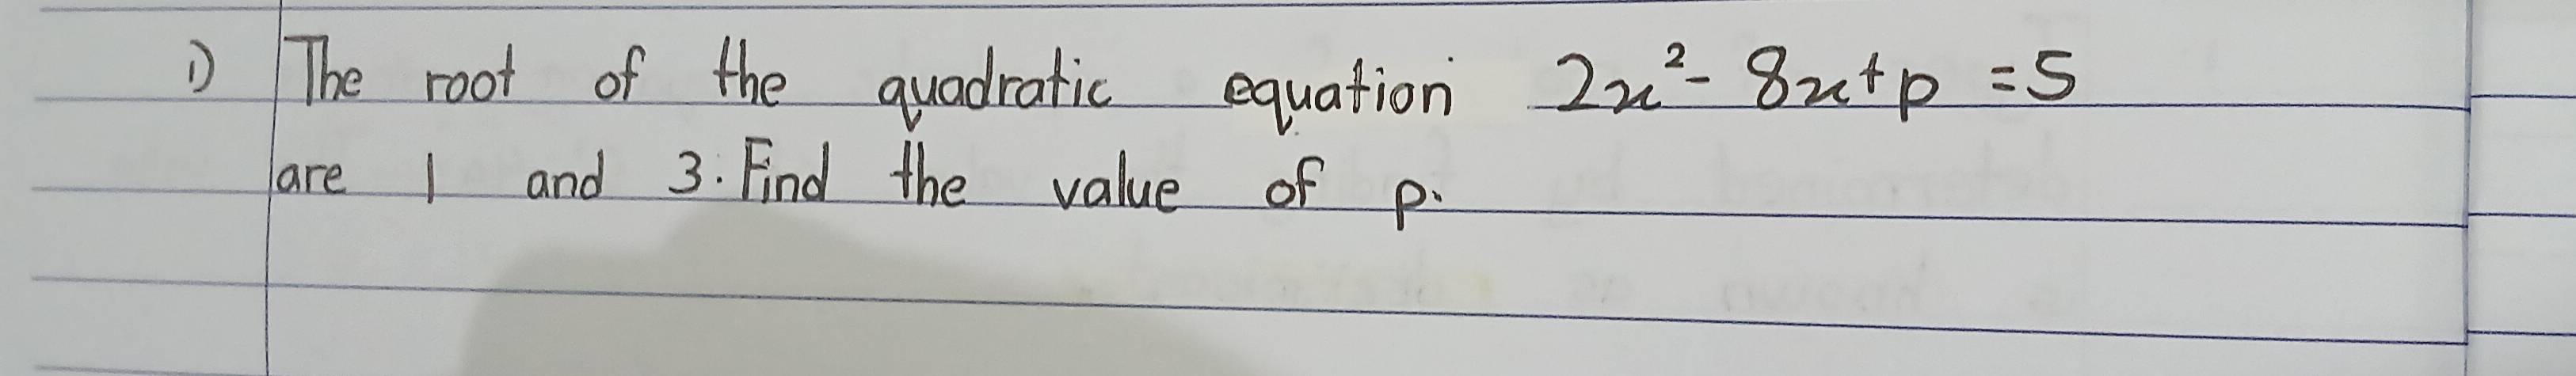 i) The root of the quadratic equation 2x² - 8x + p = 5
are 1 and 3. Find the value of p.